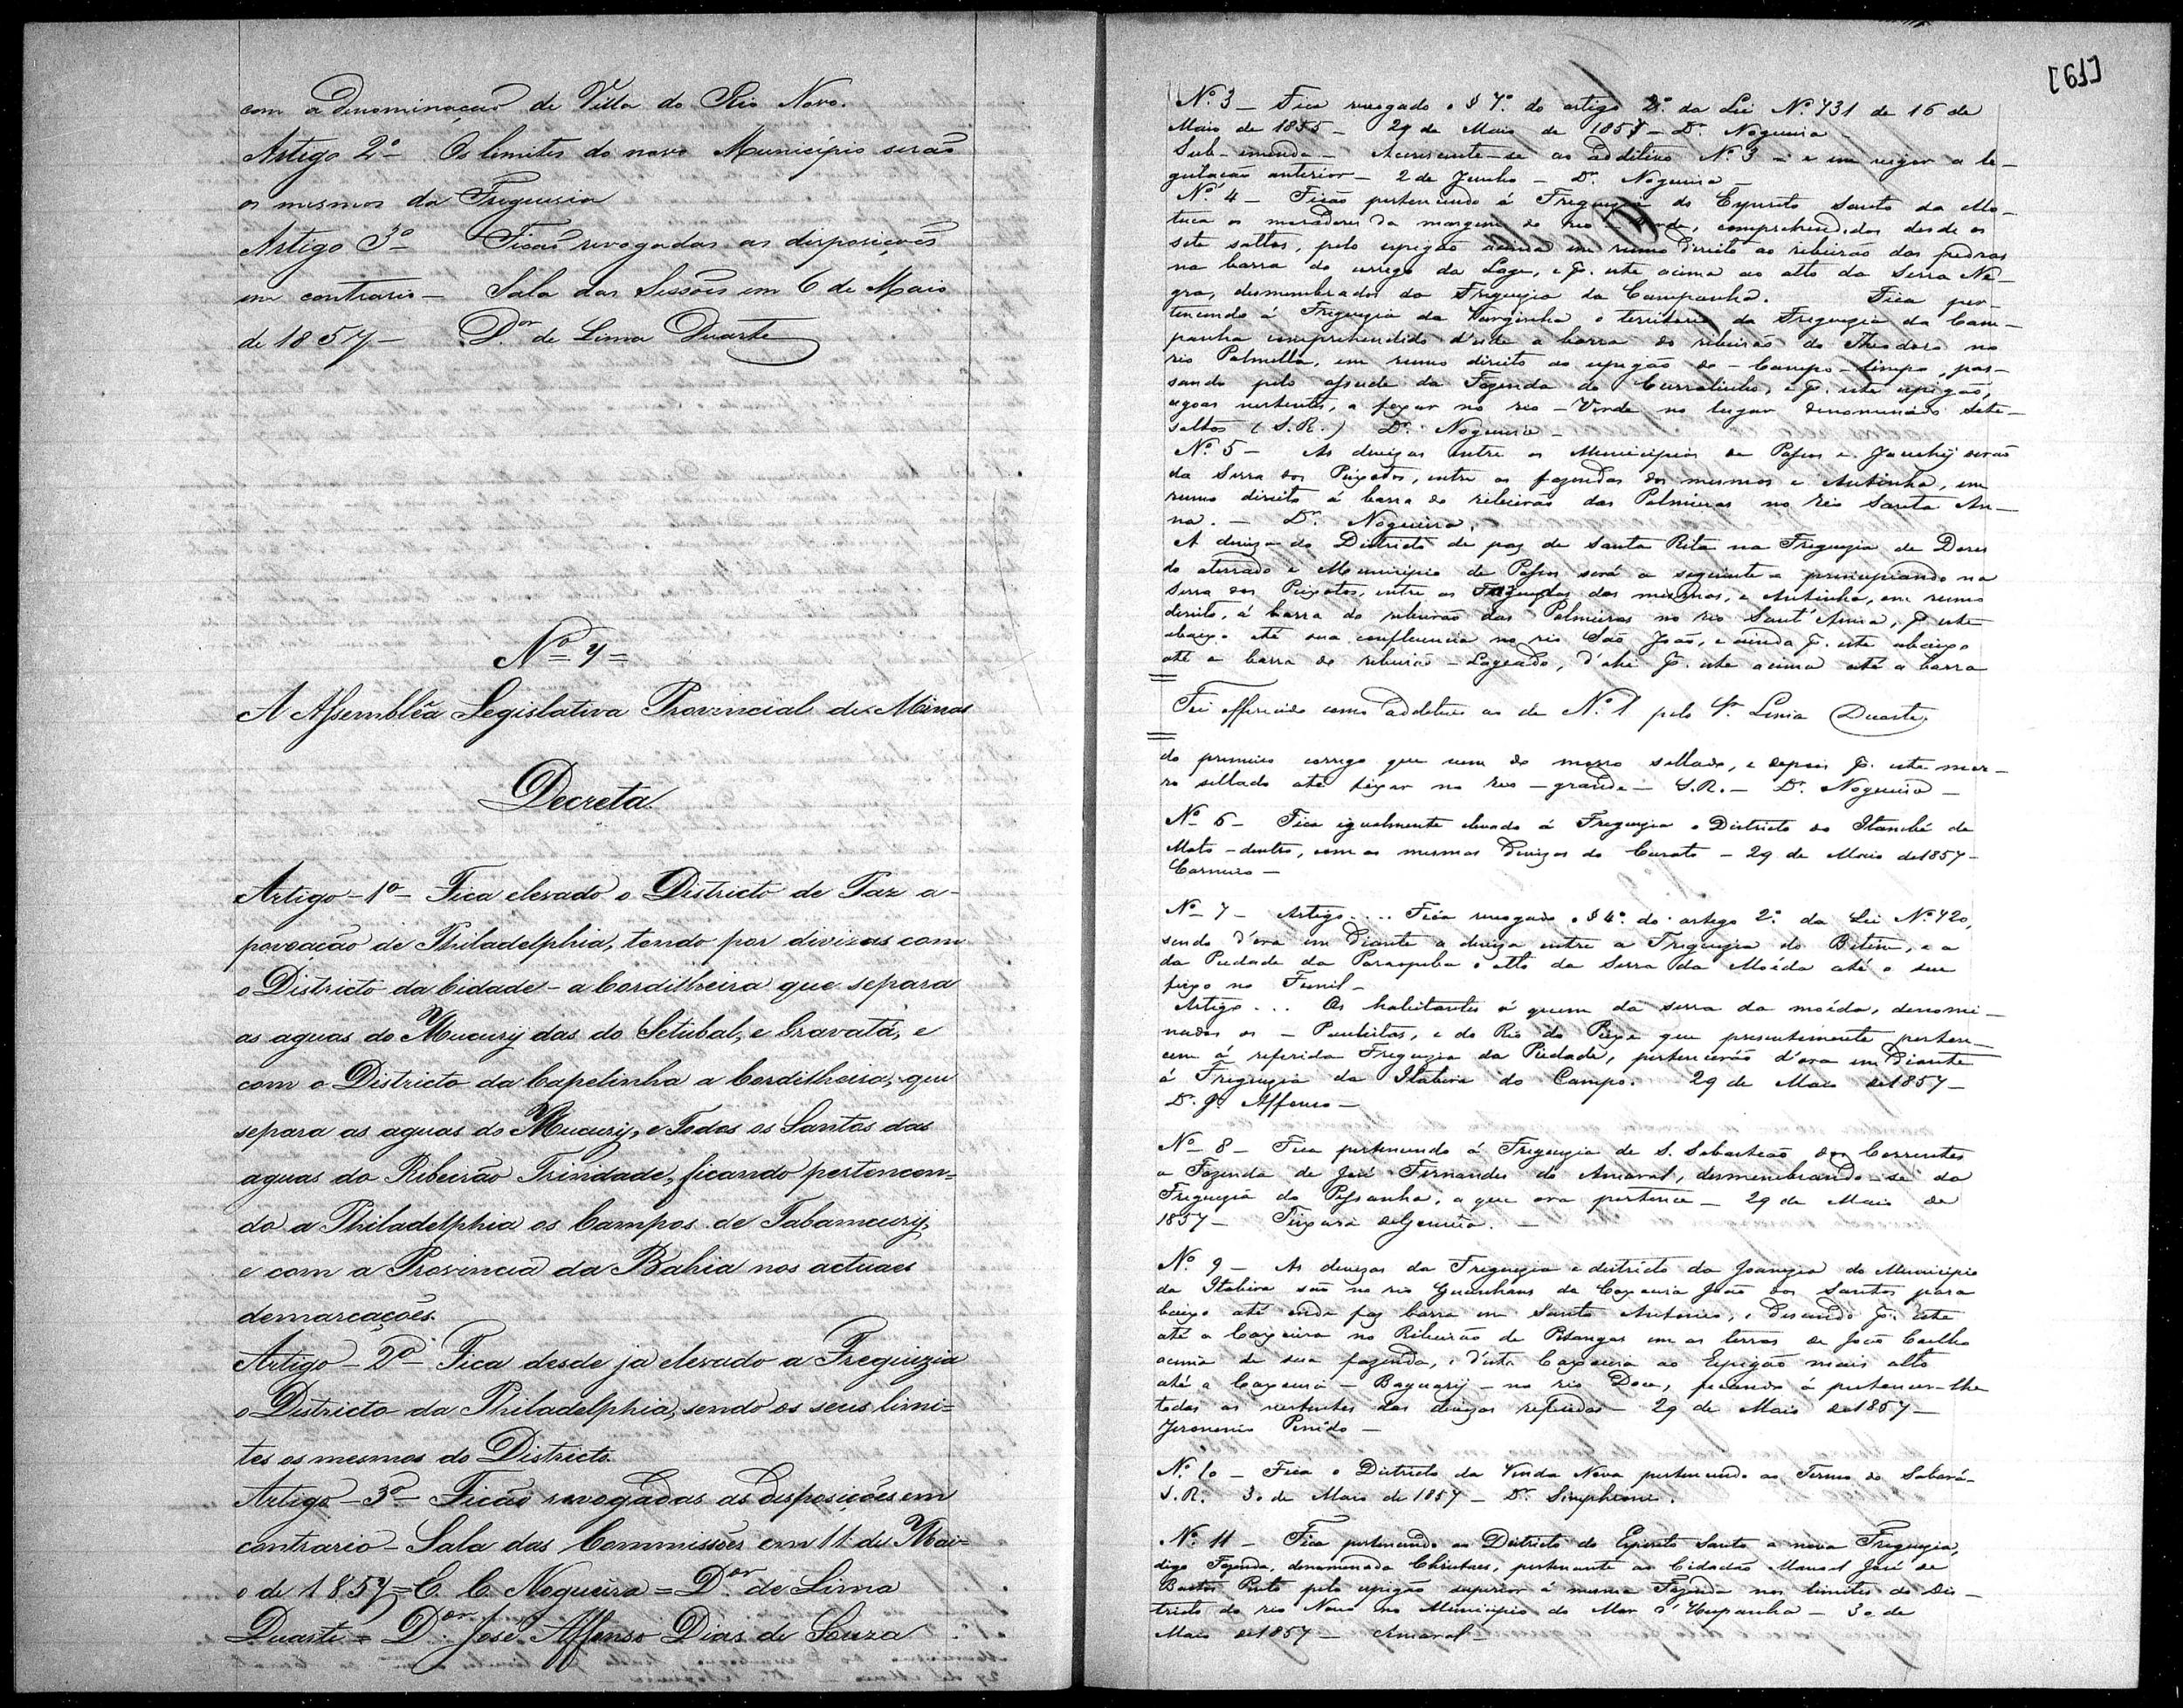 com a denominação de Villa do Rio Novo.
Artigo 2º - Os limites do novo Municipio serão
os mesmos da Freguesia
Artigo 3º - Ficão revogadas as disposições
em contrario - Sala das Sessões em 6 de Maio
de 1857 - Dor de Lima Duarte
Nº 7 =
A Assemblêa Legislativa Provincial de Minas
Decreta
Artigo - 1º - Fica elevado o Districto de Paz a
povoação de Philadelphia, tendo por divizas com
o Districto da Cidade - a Cordilheira que separa
as aguas do Mucury das do Setubal, e Gravatá, e
com o Districto da Capelinha a Cordilheira, que
separa as aguas do Mucury, e Todos os Santos das
aguas do Ribeirão Trindade, ficando pertencen=
do a Philadelphia os Campos de
e com a Provincia da Bahia nos actuaes
demarcações.
Artigo - 2º - Fica desde ja elevado a Freguizia
o Districto da Philadelphia, sendo os seus limi=
tes os mesmos do Districto.
Artigo - 3º - Ficão revogadas as disposicões em
contrario - Sala das Commissões em 11 de Mai=
o de 1857 = C. C. Nogueira = Dor de Lima
Duarte = Dor José Affonso Dias de Souza
[61]
Nº 3 - Fica revogado o § 7º do artigo 2º da Lei Nº 731 de 16 de
Maio de 1855 - 29 de Maio de 1857 - Dr Nogueira
Sub-emenda - Acrescente-se ao additivo Nº 3 - e em vigor a le-
gislação anterior - 2 de Junho - Dr Nogueira -
Nº 4 - Ficão pertencendo á Freguezia do Espirito Santo da Mu-
tuca os moradores da margem do rio Verde, comprehendidos desde os
sete saltos, pelo espigão acima em rumo direito ao ribeirão das pedras
na barra do corrego da Lage, e p. este acima ao alto da Serra Ne-
gra, desmembrados da Freguezia da Campanha. Fica per-
tencendo á Freguezia da Varginha o territorio da Freguezia da Cam-
panha comprehendido desde a barra do ribeirão do Theodoro no
rio Palmella, em rumo direito ao espigão do - Campo-limpo, pas-
sando pelo assude da Fazenda do Curralinho, e p. este espigão,
agoas vertentes, a fexar no rio - Verde no lugar denominado sete-
saltos (S.R.) Dr Nogueira -
Nº 5 - As divizas entre os Municipios de Passos e Jacuhy serão
da Serra dos Peixotos, entre as fazendas dos mesmos e Antinha, em
rumo direito á barra do ribeirão das Palmeiras no rio Santa An-
na. - Dr Nogueira.
A diviza do Districto de paz de Santa Rita na Freguezia de Dores
do aterrado e Municipio de Passos será a seguinte - principiando na
Serra dos Peixotos, entre as Fazendas dos mesmos, e Antinha, em rumo
direito, á barra do ribeirão das Palmeiras no rio Sant'Anna, p. este
abaixo até sua confluencia no rio São João, e ainda p. este abaixo
até a barra do ribeirão - Lageado, d'ahi p. este acima até a barra
Foi offerecido como additivo ao de Nº 1 pelo Sr Lima Duarte.
do primeiro corrego que vem do morro sellado, e depois p. este mor-
ro sellado até fexar no rio - grande - S.R. - Dr Nogueira -
Nº 6 - Fica igualmente elevado á Freguezia o Districto do Itambé do
Mato - dentro, com as mesmas divizas do Curato - 29 de Maio de 1857 -
Carneiro -
Nº 7 - Artigo.... Fica revogado o § 4º do artigo 2º da Lei Nº 720,
sendo d'ora em diante a diviza entre a Freguezia do Betim, e a
da Piedade da Paraopeba o alto da Serra da Moéda até o seu
fexo no Funil -
Artigo ... Os habitantes á quem da serra da moéda, denomi-
nados os - Paulistas, e do Rio do Peixe que presentemente perten-
cem á referida Freguezia da Piedade, pertencerão d'ora em diante
á Freguezia da Itabira do Campo. 29 de Maio de 1857 -
Dr J. Affonso -
Nº 8 - Fica pertencendo á Freguezia de S. Sebastião dos Correntes
a Fazenda de José Fernandes do Amaral, desmembrando-se da
Freguezia do Pessanha, a que ora pertence - 29 de Maio de
1857 - Teixeira
Nº 9 - As divizas da Freguezia e districto da Joanezia do Municipio
da Itabira são no rio Guanhans da Caxoeira João dos Santos para
baixo até onde faz barra em Santo Antonio, e descendo p. este
até a Caxoeira no Ribeirão de em as terras de João Coelho
acima de sua fazenda, e d'esta Caxoeira ao Espigão mais alto
até a Caxoeira - Baguary - no rio Doce, ficando á pertencer-lhe
todas as vertentes das divizas referidas - 29 de Maio de 1857 -
Jeronimo Penido -
Nº 10 - Fica o Districto da Venda Nova pertencendo ao Termo do Sabará -
S.R. 30 de Maio de 1857 - Dr
Nº 11 - Fica pertencendo ao Districto do Espirito Santo a nova Freguezia,
digo Fazenda, denominada pertencente ao Cidadão Manoel José de
Bastos Pinto pelo espigão superior á mesma Fazenda nos limites do Dis-
tricto do rio Novo no Municipio do Mar d'Hespanha - 30 de
Maio de 1857 - Amaral -